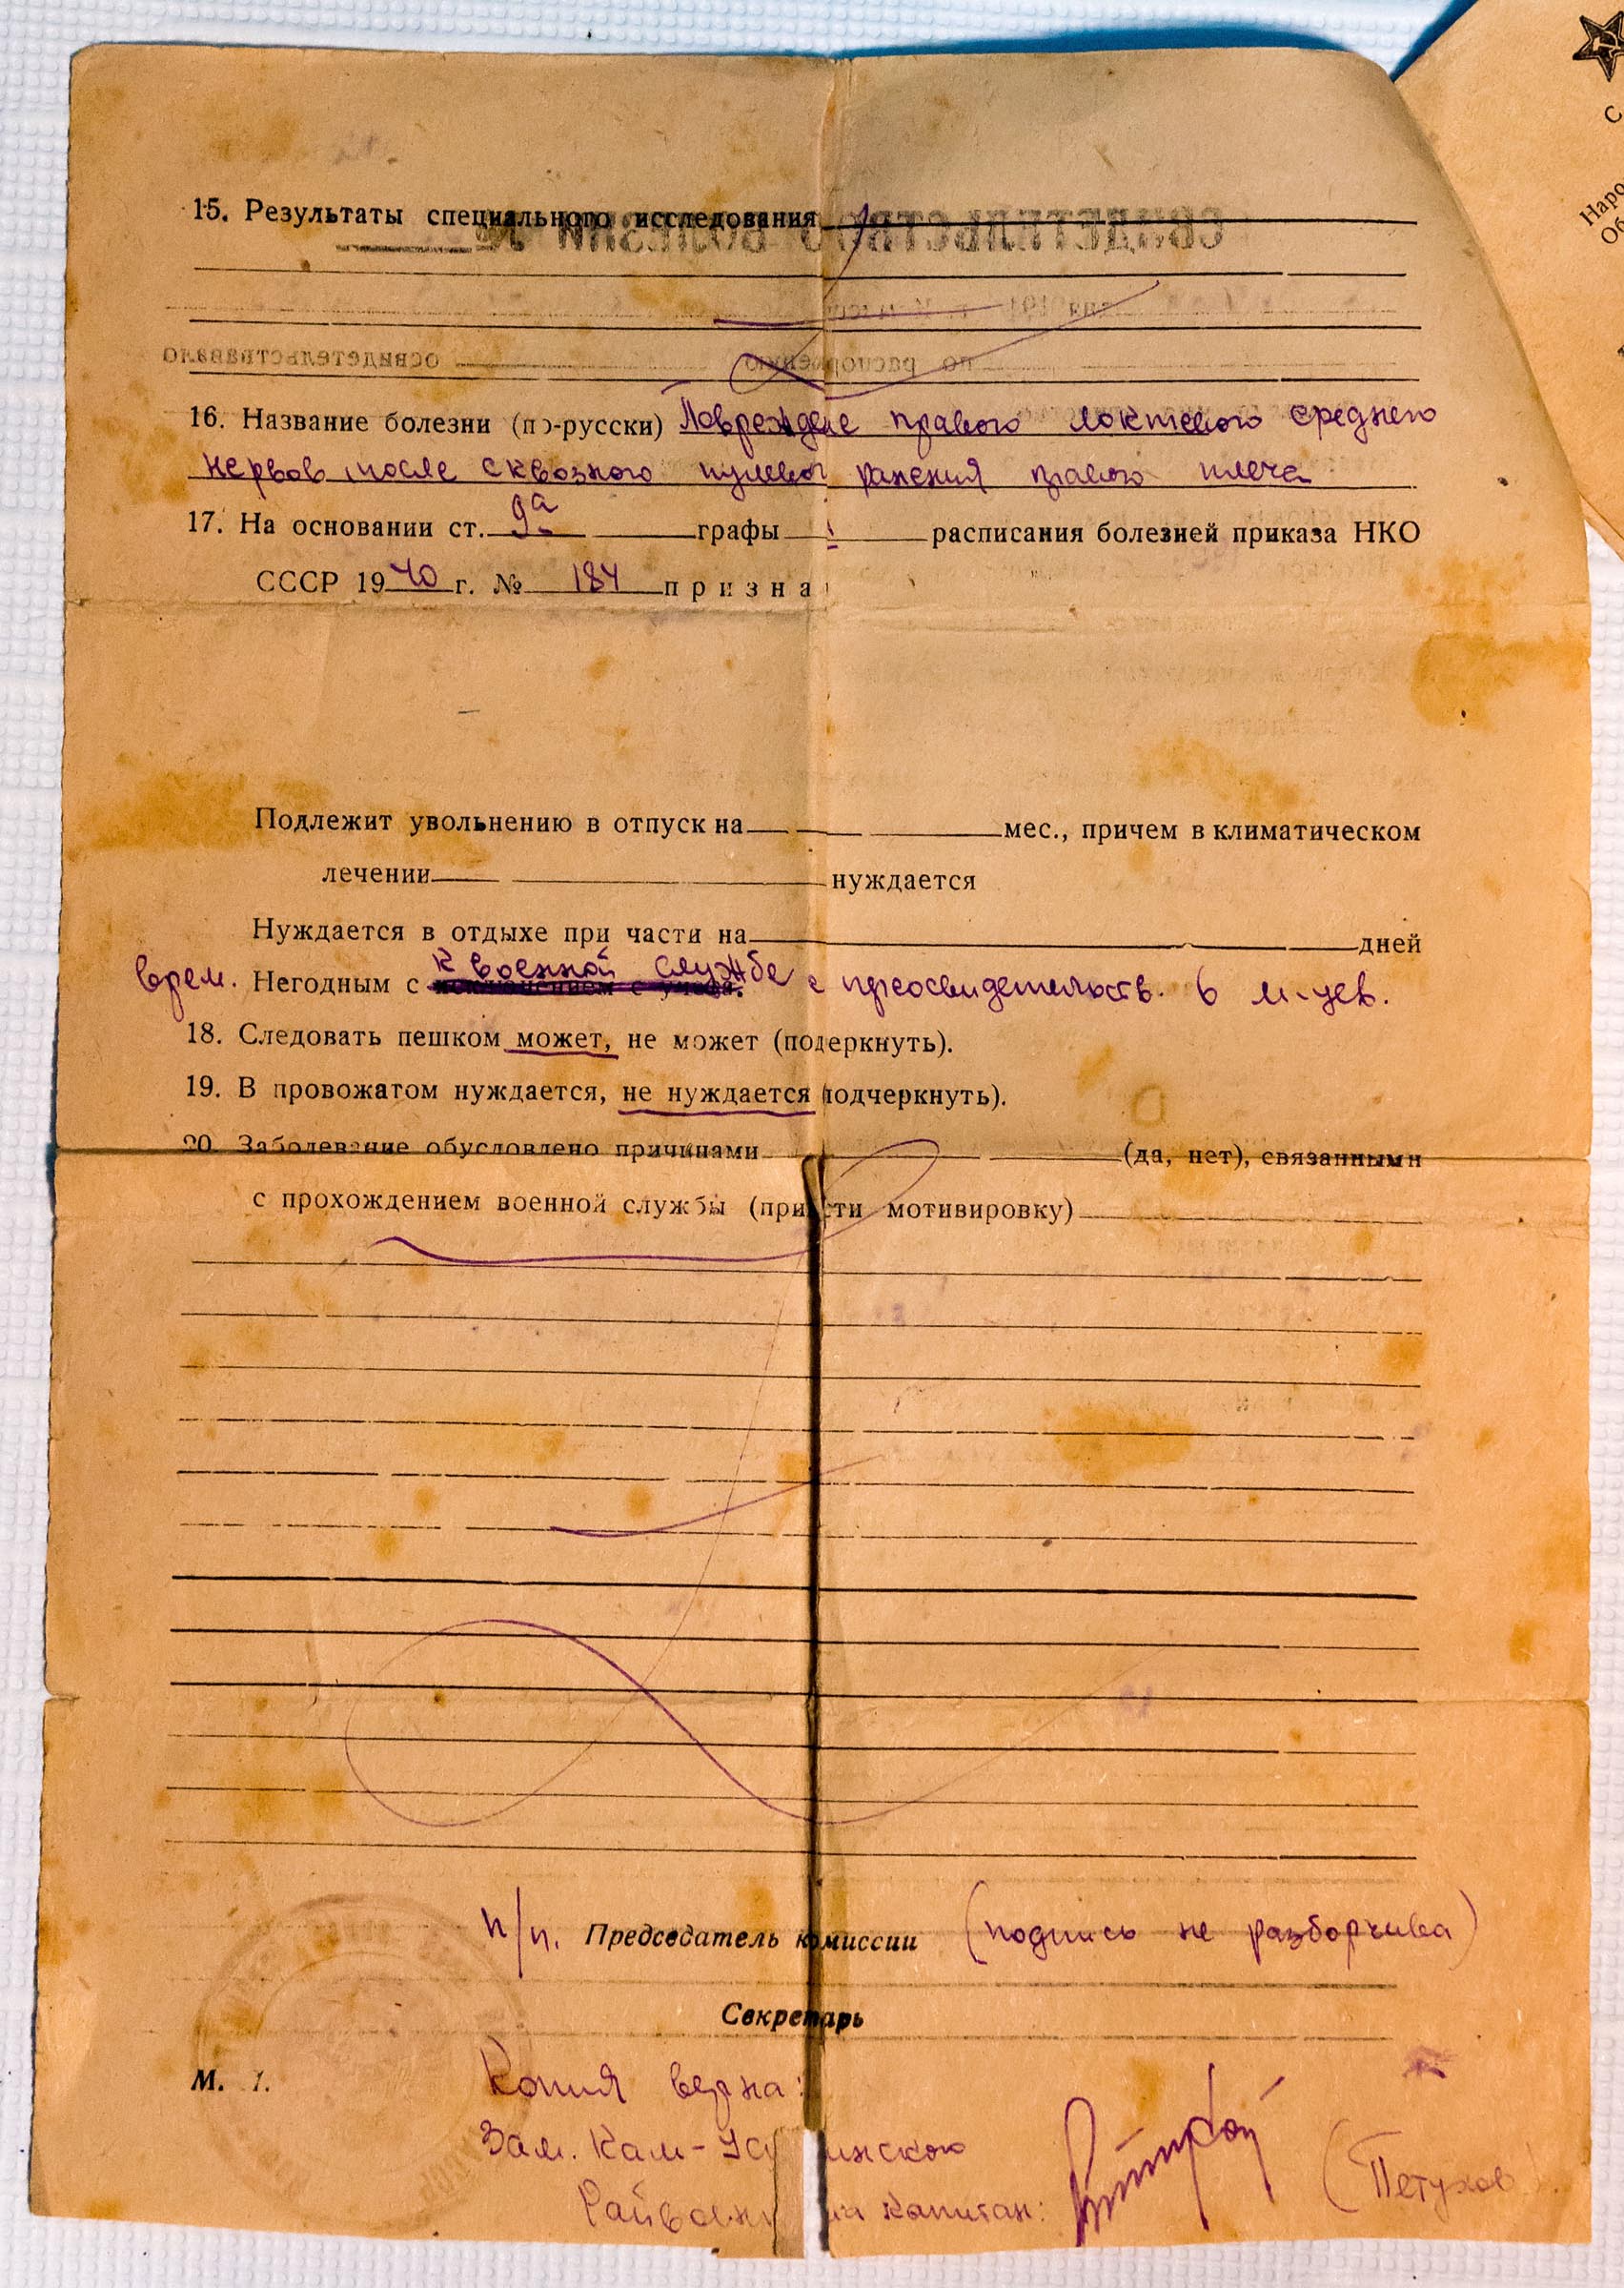 15. Результаты специального исследования
16. Название болезни (по-русски) Поврежде е правого локтевого среднего
нервов после сквозного пулевог ранения правого плеча
17. На основании ст. 9а графы I расписания болезней приказа НКО
СССР 1940 г. № 184 призна
Подлежит увольнению в отпуск на мес., причем в климатическом
лечении нуждается
Нуждается в отдыхе при части на дней
к военной службе
врем. Негодным с исключением с учета. с преосвидетельств. 6 м-цев.
18. Следовать пешком может, не может (подеркнуть).
19. В провожатом нуждается, не нуждается подчеркнуть).
20. Заболевание обусловлено причинами (да, нет), связанными
с прохождением военной службы (при сти мотивировку)
п/п. Председатель комиссии (подпись не разборчива)
Секретарь
М.
Копия верна:
Зам. Кам-Ус инского
Райвоен а капитан: (Петухов).
СВИДЕТЕЛЬСТВО О БОЛЕЗНИ №
дня 194 г. Комисс
по распоряжению освидетельствовало
С
Наро
Об